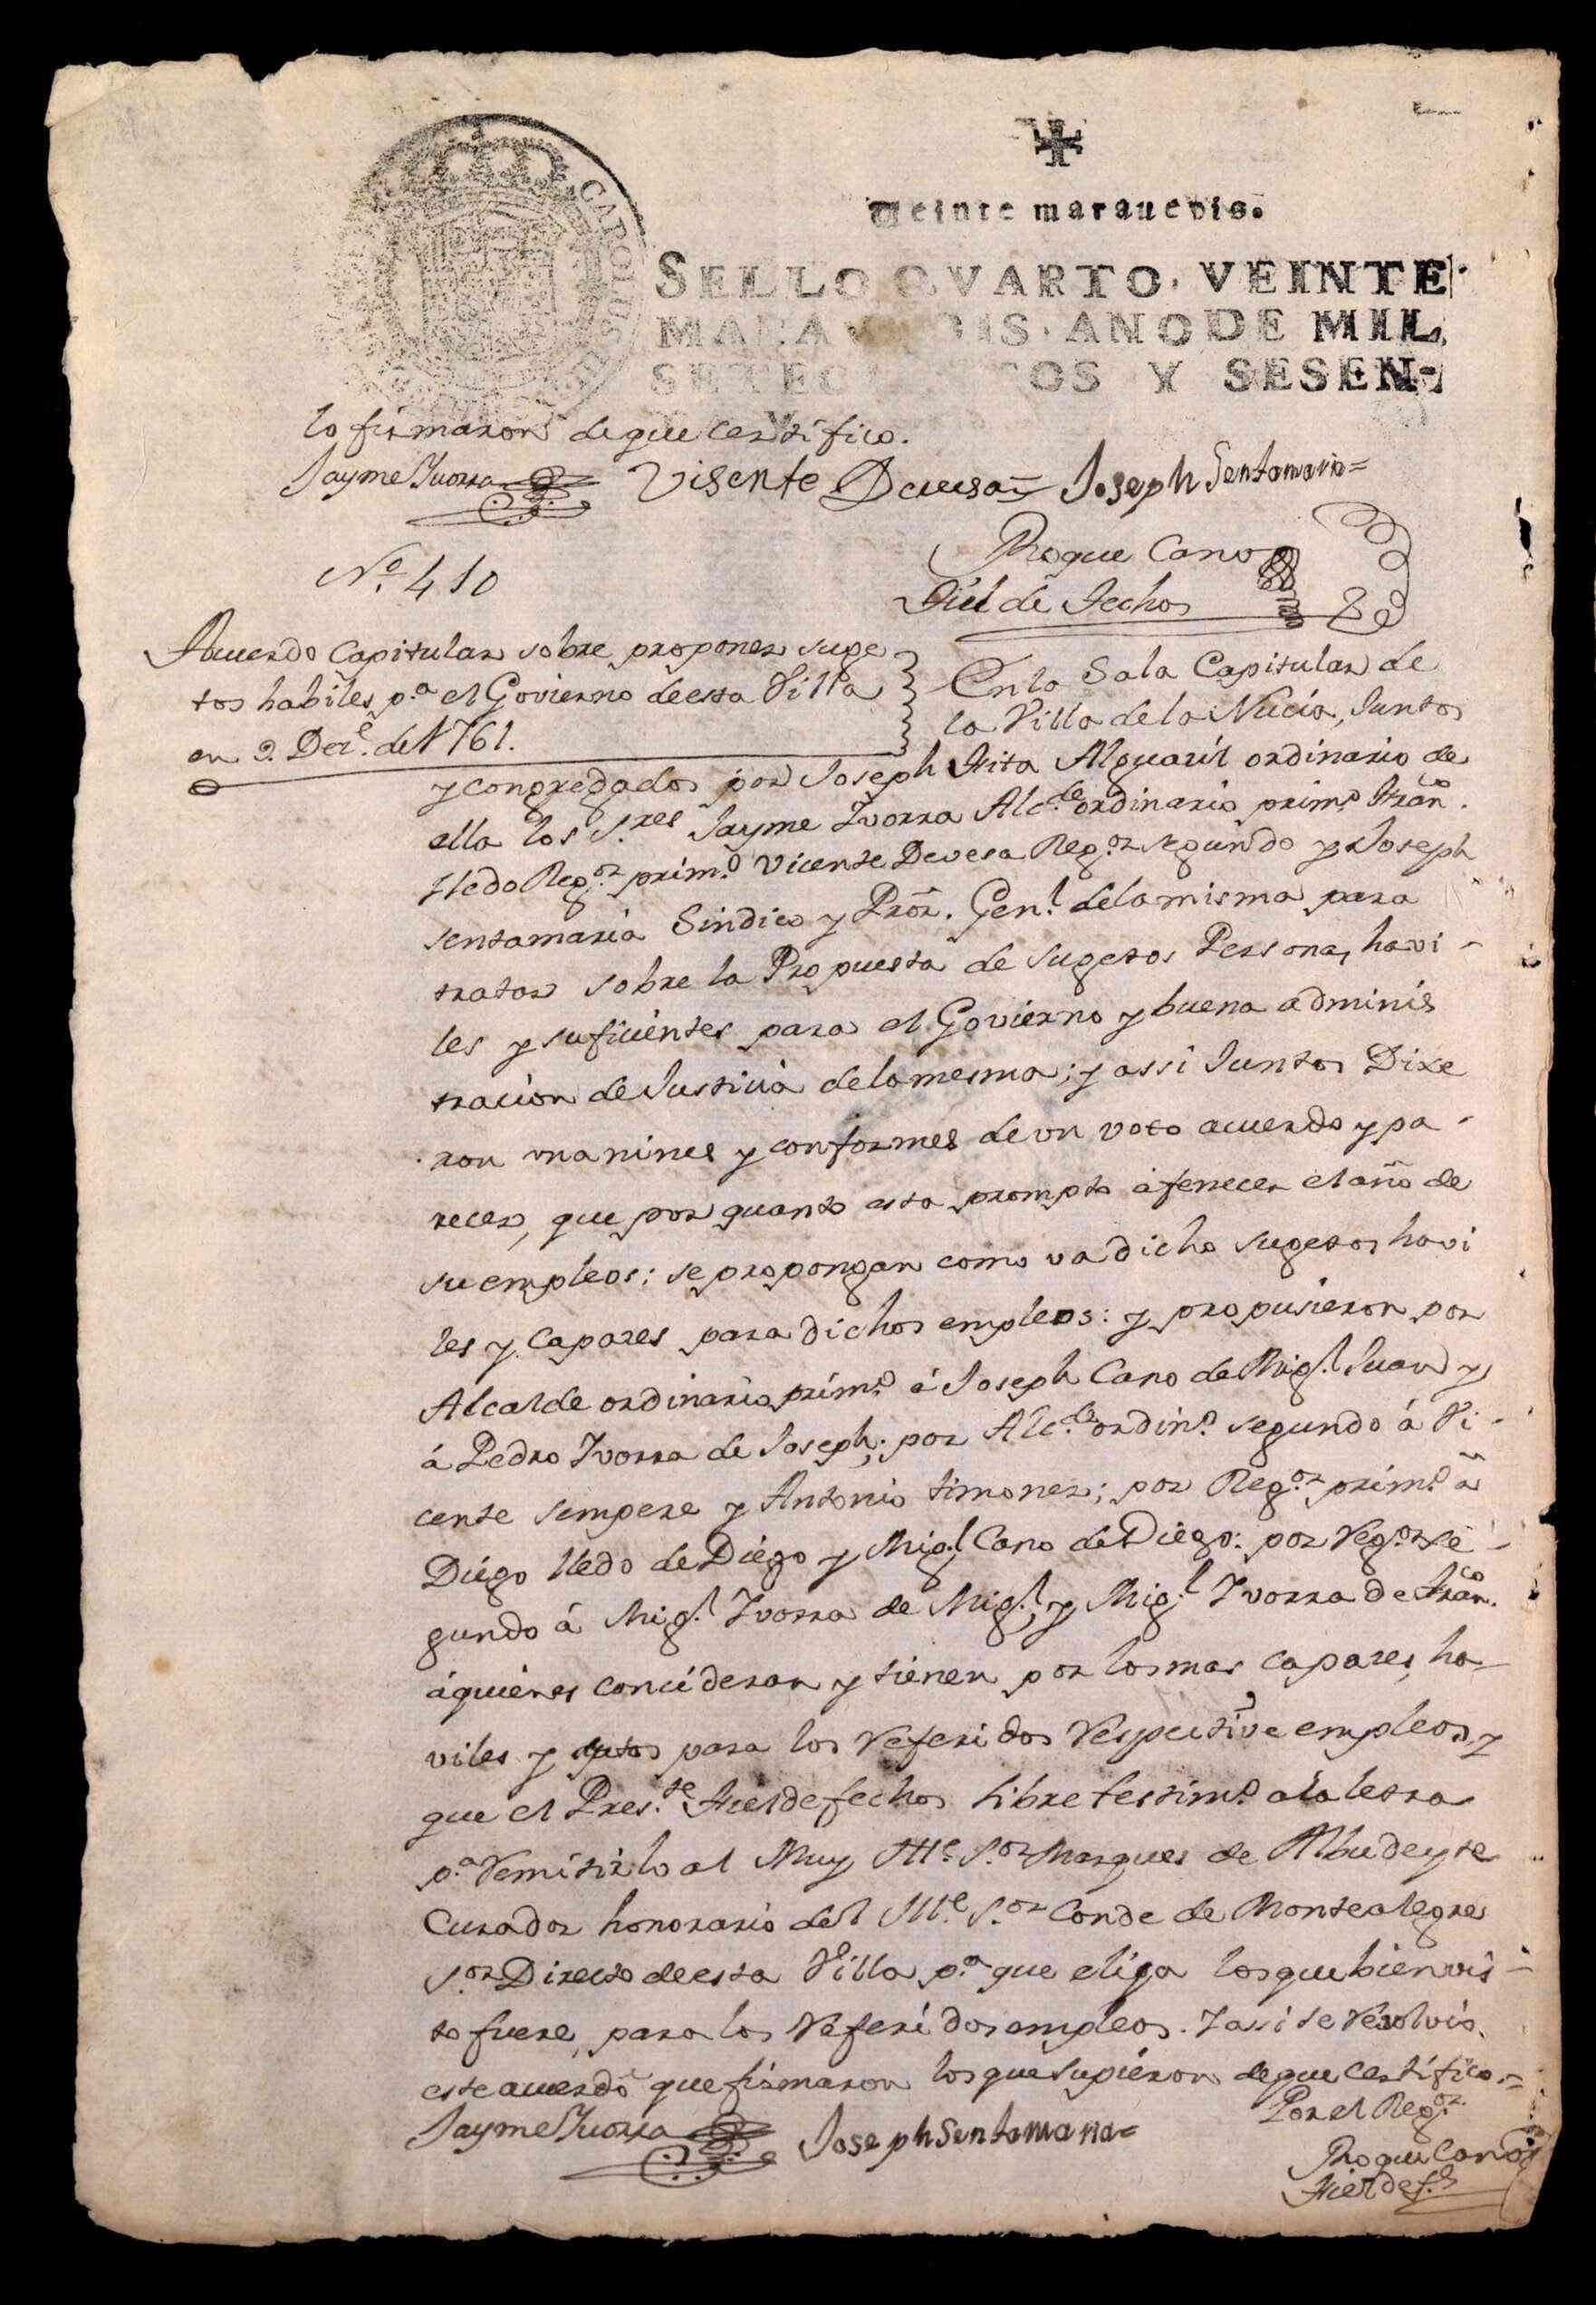 Veinte maravedis.
SELLO QVARTO, VEINTE
MARAVEDIS, AÑO DE MIL
SETECIENTOS Y SESEN-
lo firmaron de que certifico.
Jayme Yuorra Visente Deuesa Joseph Sentamaria=
Roque Cano
Fiel de Fechos
Nº. 410
Acuerdo Capitular sobre proponer suge
tos habiles p.ª el Govierno de esta Villa
en 9. Der.e de 1761.
En la Sala Capitular de
la Villa de la Nucia, Juntos
y congregados por Joseph Fita Alguazil ordinario de
ella los S.res Jayme Yvorra Alc.de ordinario prim.o Fran.co
lledo Reg.or prim.o Vicente Devesa Reg.or segundo y Joseph
sentamaria Sindico y Pror. Gen.l de la misma para
tratar sobre la Propuesta de sugetos Personas havi-
les y suficientes para el Govierno y buena adminis
tracion de Justicia de la mesma; y assi Juntos Dixe
ron unanimes y conformes de un voto acuerdo y pa-
recer, que por quanto esta prompto á fenecer el año de
su empleos; se propongan como va dicho sugetos havi
les y capazes para dichos empleos: y propusieron por
Alcalde ordinario prim.o á Joseph Cano de Mig.l Juan y
á Pedro Yvorra de Joseph; por Alc.de ordin.o segundo á Vi-
cente sempere y Antonio timoner; por Reg.or prim.o a
Diego lledo de Diego y Mig.l Cano de Diego: por Reg.or se-
gundo á Mig.l Yvorra de Mig.l, y Mig.l Yvorra de Fran.co
áquienes concideran y tienen por los mas capazes, ha-
viles y aptos para los referidos respectivẽ empleos, y
que el Pres.te Fiel de fechos libre testim.o a la letra
p.ª remitirlo al Muy Ill.e S.or Marques de Albudeyte
Curador honorario del Ill.e S.or Conde de Montealegre
S.or Directo de esta Villa p.ª que elija los que bien vis-
to fuere, para los referidos empleos. Y assi se resolvió
este acuerdo que firmaron los que supieron de que certifico.=
Jayme Yuorra Joseph Sentamaria=
Por el Reg.or
Roque Cano
Fiel de f.s